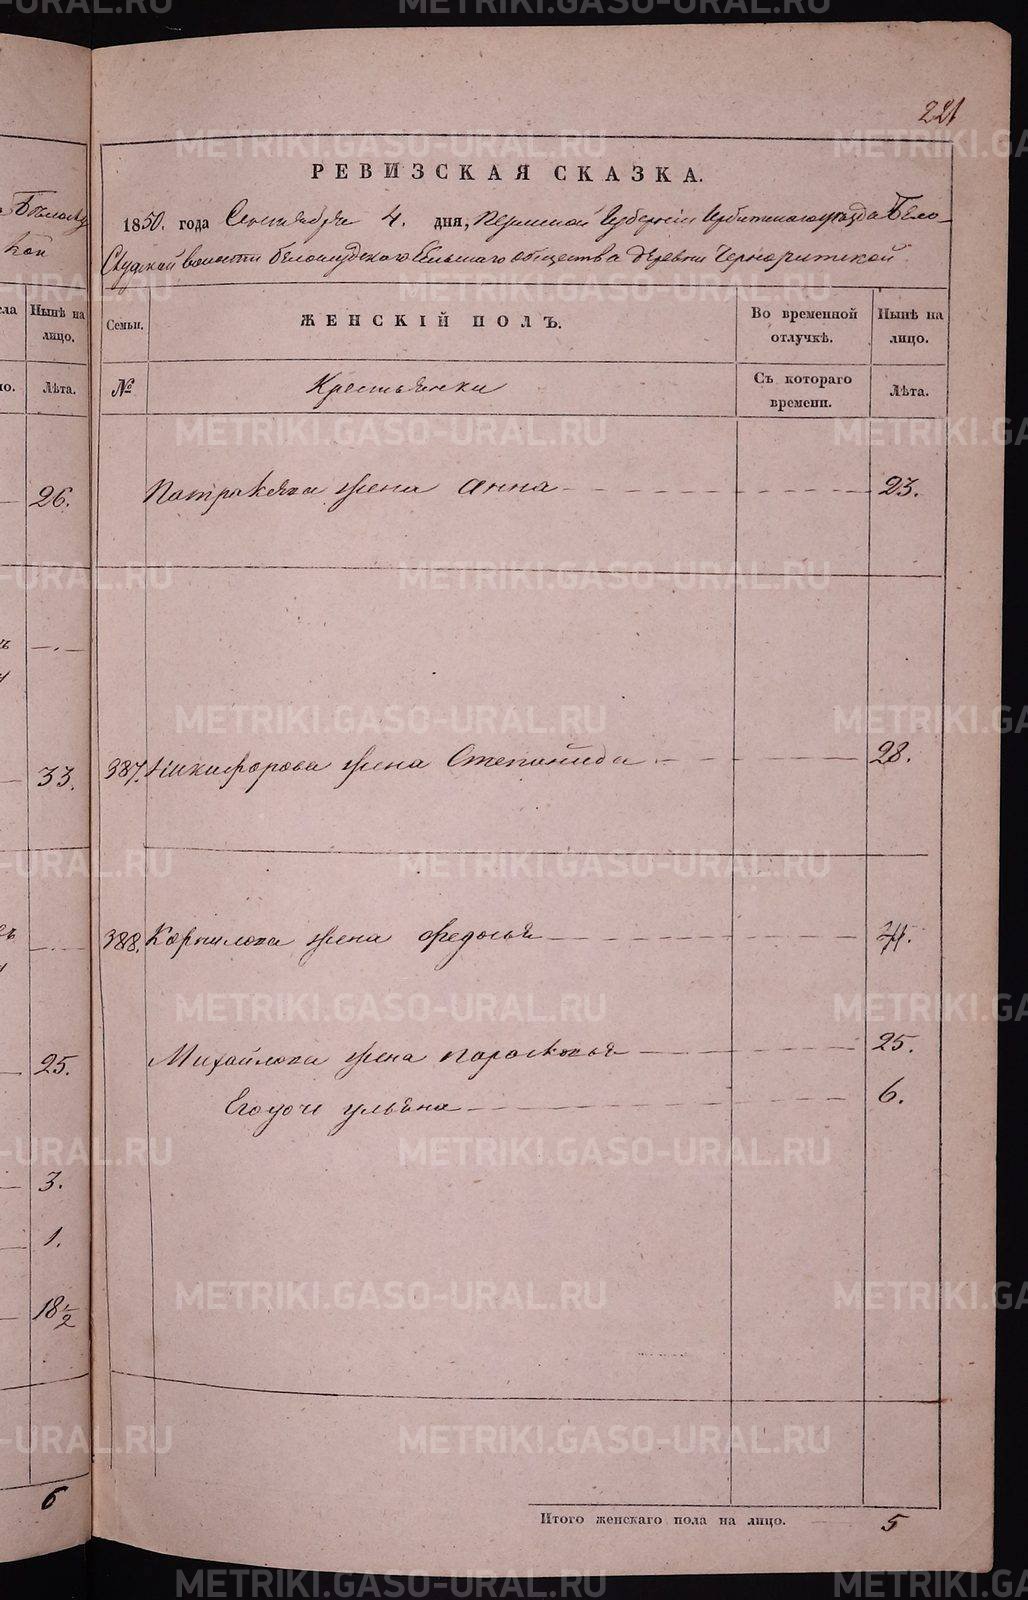 221
РЕВИЗСКАЯ СКАЗКА.
1850. года Сентября 4. дня, Пермской Губернии Ирбитскаго уезда Бело-
Слудской волости Белослудскаго Сельскаго общества деревни
Семьи. ЖЕНСКІЙ ПОЛЪ. Во временной отлучкѣ. Нынѣ на лицо.
№ Крестьянки Съ котораго времени. Лѣта.
Патракѣева жена Анна 23.
387. Никифорова жена Степанида 28.
388. Корнилова жена Федосья
Михайлова жена Парасковья 25.
Егодочь Ульяна 6.
Итого женскаго пола на лицо. 5
Нынѣ на лицо.
Лѣта.
26.
33.
25.
3.
1.
18 1/2
6
METRIKI.GASO-URAL.RU